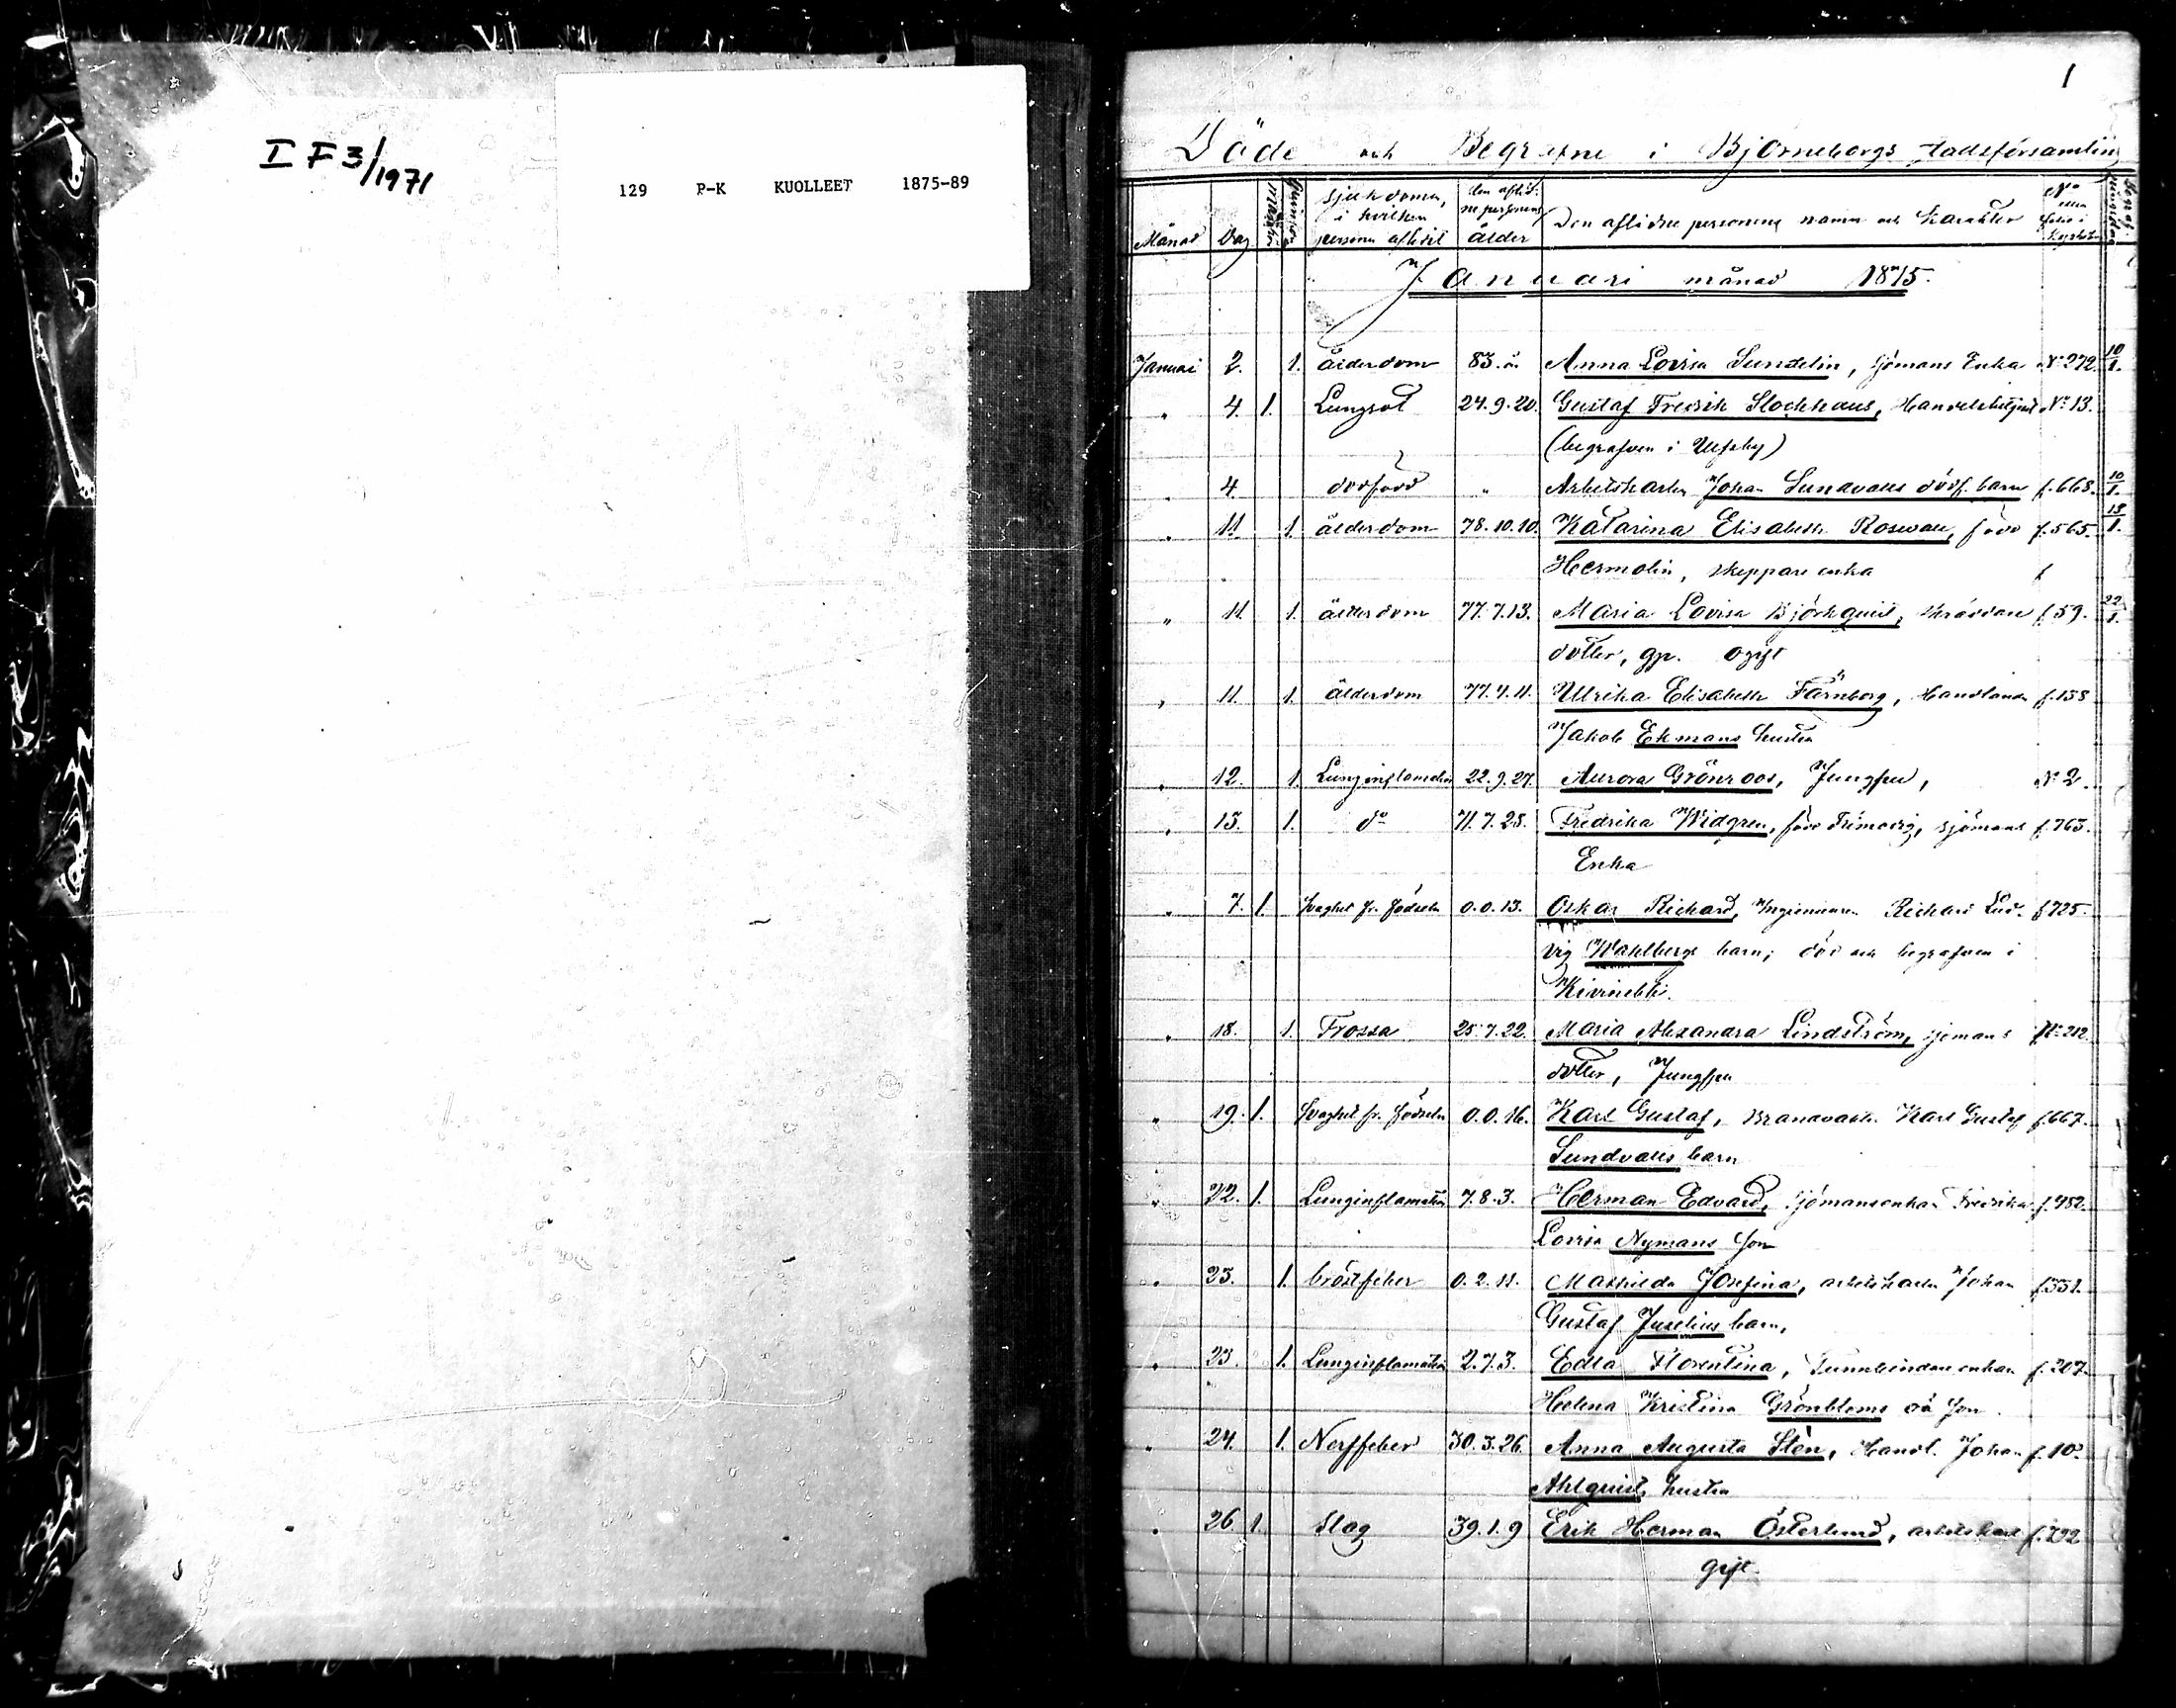 I F 3/1971
129 P-K KUOLLEET 1875-89
1
Döde och Begrafne i Björneborgs stadsförsamling
Månad Dag mankön qvinkön sjukdomen, i hvilken personen aflidit den aflidne personens ålder Den aflidne personens namn och karakter No eller folio i Kyrkob.
Januari månad 1875.
Januari 2. 1. ålderdom 83. år Anna Lovisa Sundelin, Sjömans Enka No 272. 10/1.
" 4. 1. Lungsot 24.9.20. Gustaf Fredrik Stockhaus, Handelsbetjent No 13.
(begrafven i Ulfsby)
" 4. dödfödd " Arbetskarlen Johan Sundvalls dödf. barn f. 668. 10/1.
" 11. 1. ålderdom 78.10.10. Katarina Elisabeth Rosevall, född f. 565. 18/1.
Hermolin, skeppare enka
" 11. 1. ålderdom 77.7.13. Maria Lovisa Björkquist, skräddare f. 59. 22/1.
dotter, gp. ogift
" 11. 1. ålderdom 77.4.11. Ulrika Elisabeth Färnberg, Handlanden f. 158
Jakob Ekmans hustru
" 12. 1. Lunginflamation 22.9.27. Aurora Grönroos, Jungfru, No 2.
" 13. 1. do 71.7.25. Fredrika Widgren, född Frimodig, sjömans f. 763.
Enka
" 7. 1. Svaghet fr. födseln 0.0.13. Oskar Richard, Ingenieuren Richard Lud- f. 725.
vig Wahlbergs barn; död och begrafven i
Kivinebb.
" 18. 1. Frossa 25.7.22. Maria Alexandra Lindström, sjömans No 212.
dotter, Jungfru
" 19. 1. Svaghet fr. födseln 0.0.16. Karl Gustaf, Brandvakt. Karl Gustaf f. 667.
Sundvalls barn
" 22. 1. Lunginflamation 7.8.3. Herman Edvard, Sjömansenkan Fredrika f. 482.
Lovisa Nymans son
" 23. 1. bröstfeber 0.2.11. Mathilda Josefina, arbetskarlen Johan f. 331.
Gustaf Juselius barn,
" 23. 1. Lunginflamation 2.7.3. Edla Florentina, Tunnbindare enkan f. 207.
Helena Kristina Grönbloms oä son
" 24. 1. Nerffeber 30.3.26. Anna Augusta Stén, Handl. Johan f. 10.
Ahlquists hustru
" 26. 1. Slag 39.1.9 Erik Herman Österlund, arbetskarl f. 792
gift.